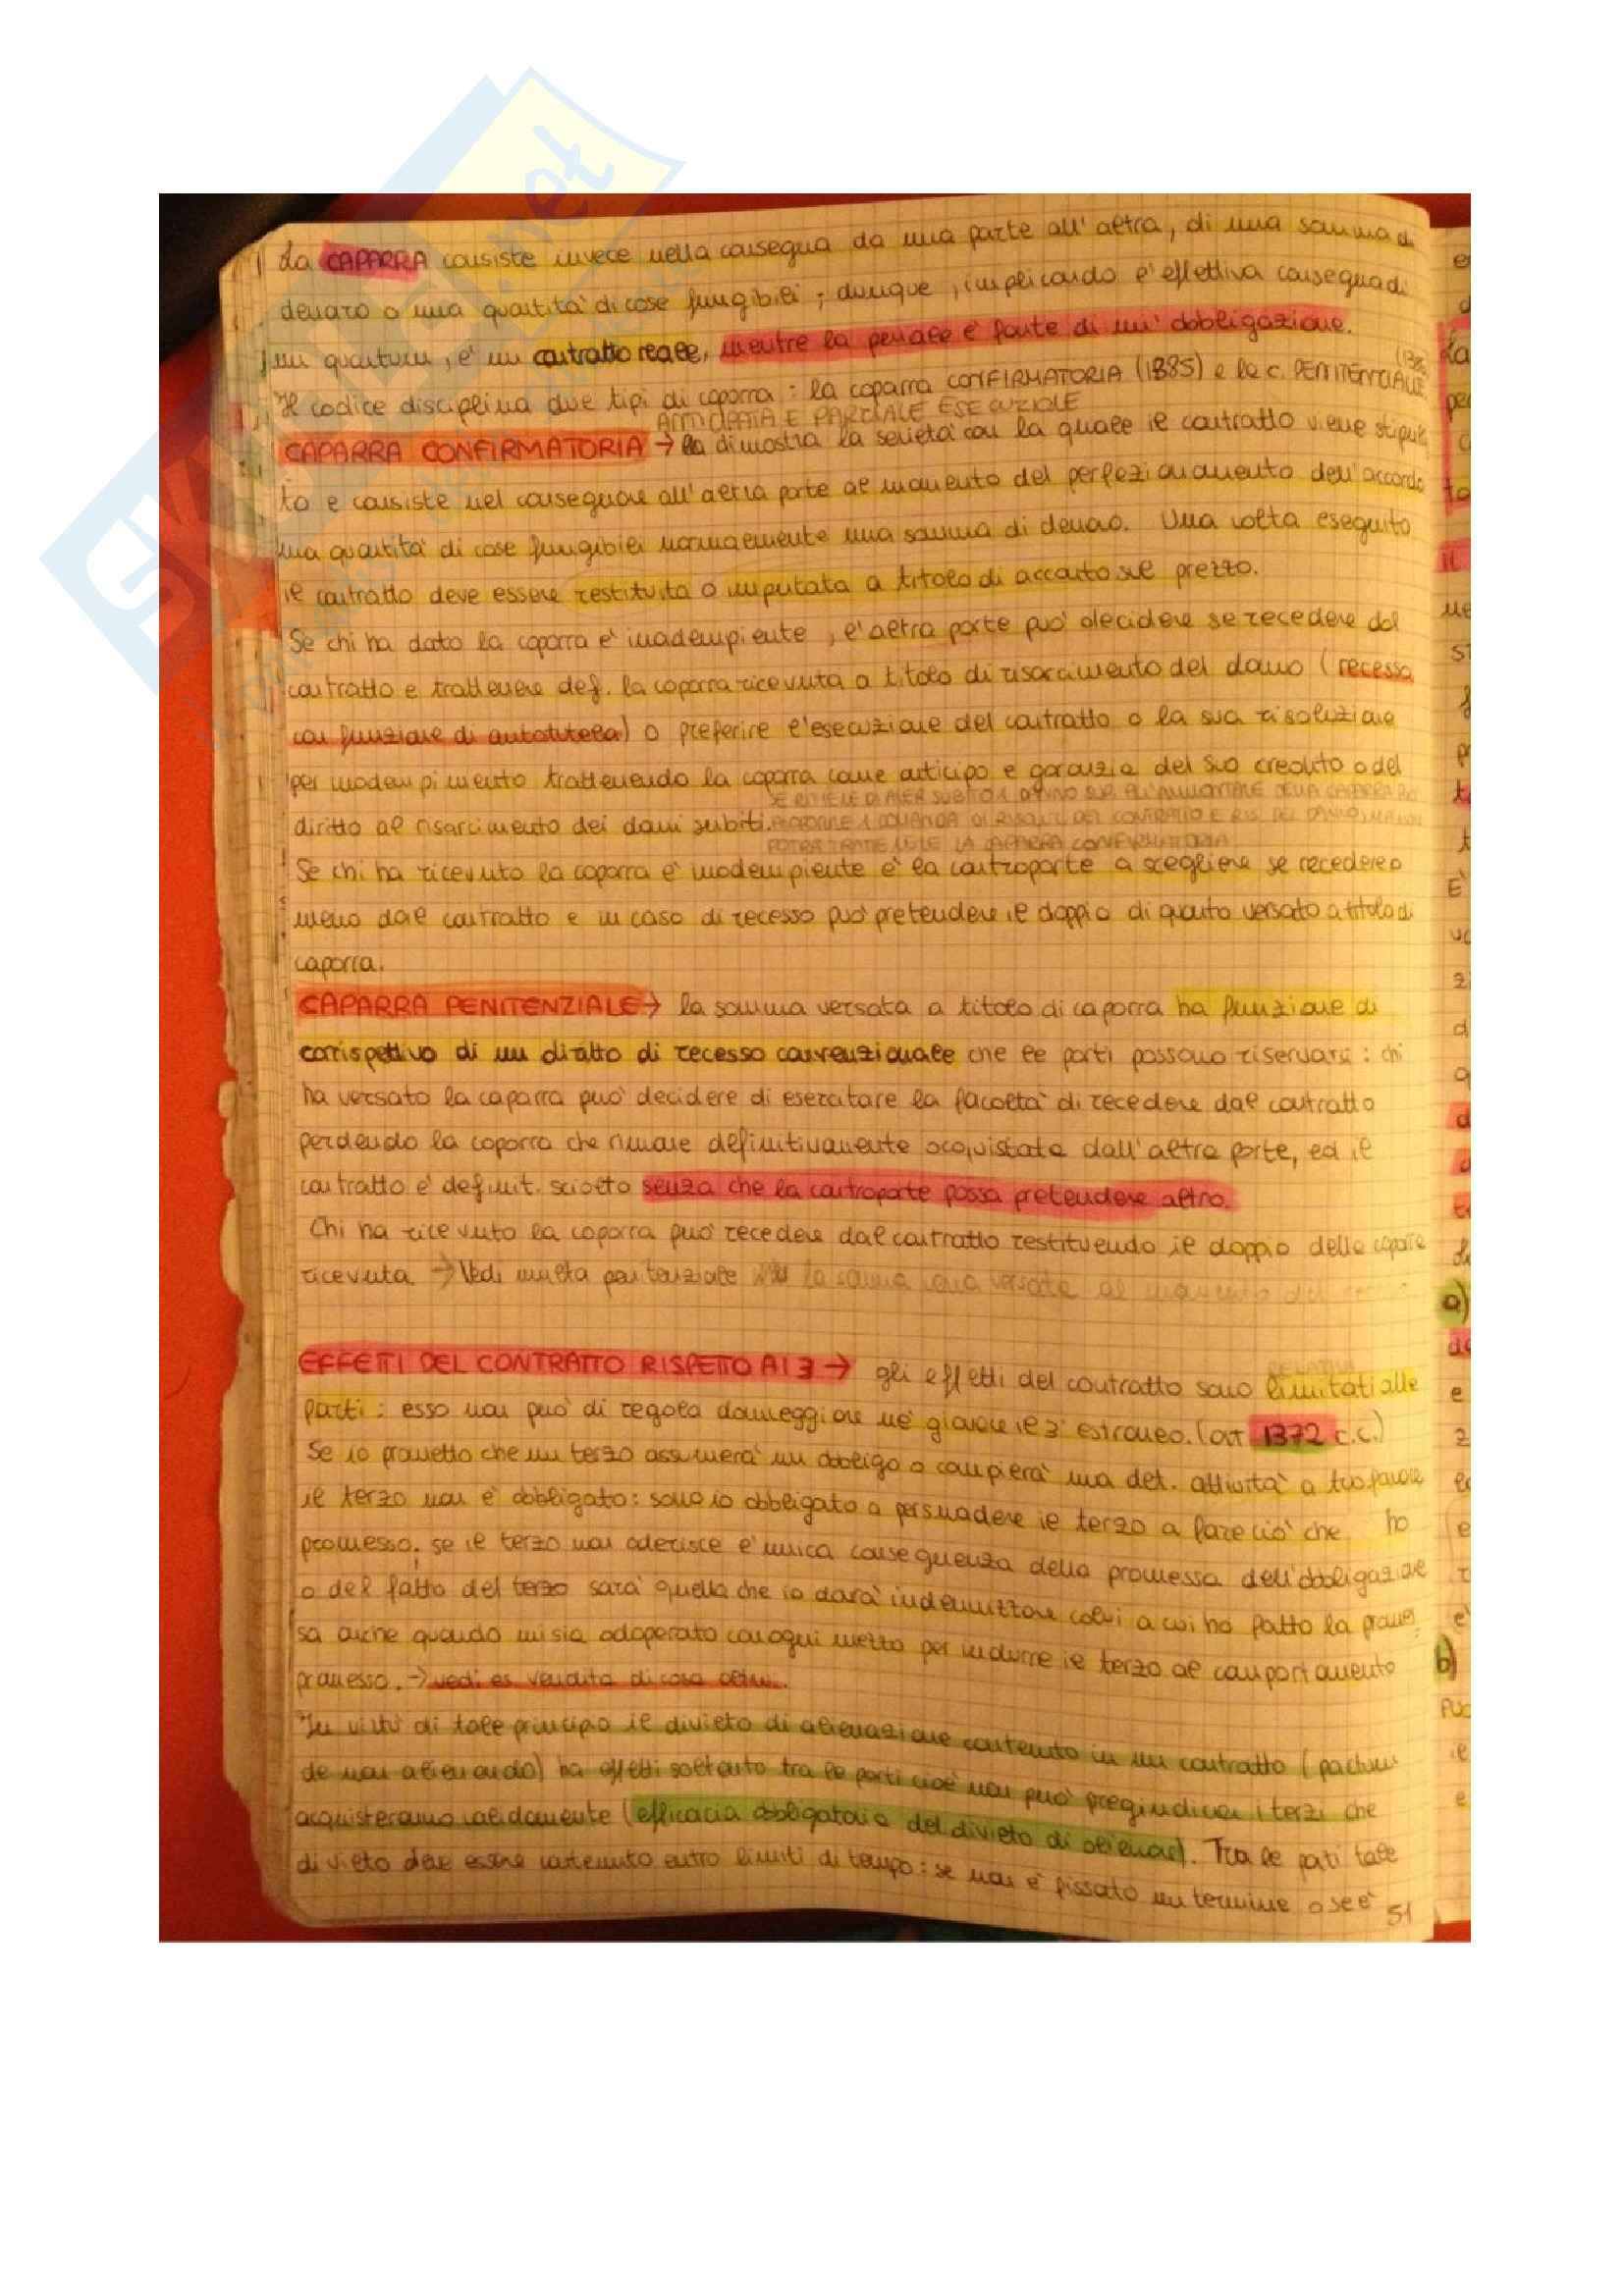 La CAPARRA consiste invece nella consegna da una parte all'altra, di una somma di
denaro o una quantità di cose fungibili; dunque, implicando l'effettiva consegna di
un quantum, è un contratto reale, mentre la penale è fonte di un'obbligazione.
Il codice disciplina due tipi di caparra: la caparra CONFIRMATORIA (1385) e la c. PENITENZIALE
ANTICIPATA E PARZIALE ESECUZIONE
CAPARRA CONFIRMATORIA → dimostra la serietà con la quale il contratto viene stipula
to e consiste nel consegnare all'altra parte al momento del perfezionamento dell'accordo
una quantità di cose fungibili normalmente una somma di denaro. Una volta eseguito
il contratto deve essere restituita o imputata a titolo di acconto sul prezzo.
Se chi ha dato la caparra è inadempiente, l'altra parte può decidere se recedere dal
contratto e trattenere def. la caparra ricevuta a titolo di risarcimento del danno (recesso
con funzione di autotutela) o preferire l'esecuzione del contratto o la sua risoluzione
per inadempimento trattenendo la caparra come anticipo e garanzia del suo credito o del
SE RITIENE DI AVER SUBITO 1 DANNO SUP. ALL'AMMONTARE DELLA CAPARRA
diritto al risarcimento dei danni subiti. 1 DOMANDA DI RISOLUZ. DEL CONTRATTO E RIS. DEL DANNO
POTRÀ TRATTENERE LA CAPARRA CONFIRMATORIA
Se chi ha ricevuto la caparra è inadempiente è la controparte a scegliere se recedere o
meno dal contratto e in caso di recesso può pretendere il doppio di quanto versato a titolo di
caparra.
CAPARRA PENITENZIALE → la somma versata a titolo di caparra ha funzione di
corrispettivo di un diritto di recesso convenzionale che le parti possono riservarsi: chi
ha versato la caparra può decidere di esercitare la facoltà di recedere dal contratto
perdendo la caparra che rimane definitivamente acquistata dall'altra parte, ed il
contratto è definit. sciolto senza che la controparte possa pretendere altro.
Chi ha ricevuto la caparra può recedere dal contratto restituendo il doppio della caparra
ricevuta. → Vedi multa penitenziale la somma versata al momento del
EFFETTI DEL CONTRATTO RISPETTO AI 3 → gli effetti del contratto sono limitati alle
RELATIVI
parti: esso non può di regola danneggiare né giovare il 3° estraneo. (art 1372 c.c.)
Se io prometto che un terzo assumerà un obbligo o compierà una det. attività a tuo favore
il terzo non è obbligato: sono io obbligato a persuadere il terzo a fare ciò che ho
promesso; se il terzo non aderisce l'unica conseguenza della promessa dell'obbligazione
o del fatto del terzo sarà quella che io darà indennizzare colui a cui ho fatto la promes
sa anche quando mi sia adoperato con ogni mezzo per indurre il terzo al comportamento
promesso. → vedi es vendita di cosa altrui.
In virtù di tale principio il divieto di alienazione contenuto in un contratto (pactum
de non alienando) ha effetti soltanto tra le parti cioè non può pregiudicare i terzi che
acquisteranno validamente (efficacia obbligatoria del divieto di alienare). Tra le parti tale
divieto deve essere contenuto entro limiti di tempo: se non è fissato un termine o se è
51
a)
b)
SKUOLA.net